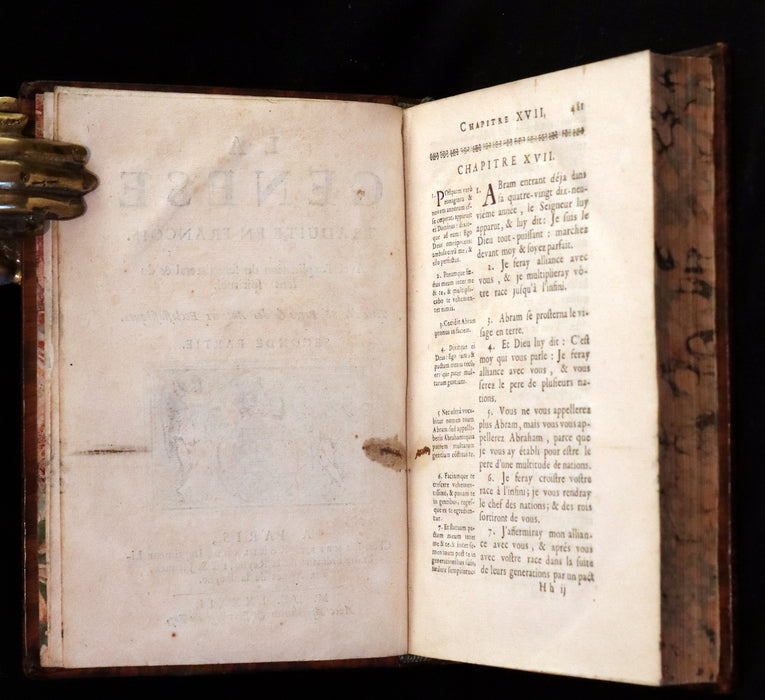 LA
GENESE
TRADUITE EN FRANÇOIS.
SECONDE PARTIE.
A PARIS,
CHAPITRE XVII. 481
CHAPITRE XVII.
1. ABram entrant déja dans
sa quatre-vingt dix-neu-
viéme année, le Seigneur luy
apparut, & luy dit: Je suis le
Dieu tout-puissant: marchez
devant moy & soyez parfait.
2. Je feray alliance avec
vous, & je multiplieray vô-
tre race jusqu'à l'infini.
3. Abram se prosterna le vi-
sage en terre.
4. Et Dieu luy dit: C'est
moy qui vous parle: Je feray
alliance avec vous, & vous
serez le pere de plusieurs na-
tions.
5. Vous ne vous appellerez
plus Abram, mais vous vous ap-
pellerez Abraham, parce que
je vous ay établi pour estre le
pere d'une multitude de nations.
6. Je feray croistre vostre
race à l'infini; je vous rendray
le chef des nations; & des rois
sortiront de vous.
7. J'affermiray mon allian-
ce avec vous, & aprés vous
avec vostre race dans la suite
de leurs generations par un pact
1. POstquam verò
nonaginta &
novem annorum es-
se cœperat, apparuit
ei Dominus: dixit-
que ad eum: Ego
Deus omnipotens:
ambula coràm me, &
esto perfectus.
2. Ponamque fœ-
dus meum inter me
& te, & multipli-
cabo te vehemen-
ter nimis.
3. Cecidit Abram
pronus in faciem.
4. Dixitque ei
Deus: Ego sum, &
pactum meum te-
cum
gentium.
5. Nec ultrà voca-
bitur nomen tuum
Abram: sed appella-
beris Abraham: quia
patrem multarum
gentium constitui te.
6. Faciamque te
crescere vehemen-
tissimè, & ponam te
in gentibus, reges-
que ex te egredien-
tur.
7. Et statuam pa-
ctum meum inter
me & te, & inter se-
men tuum post te in
generationibus suis
fœdere sempiterno:
Hh ij